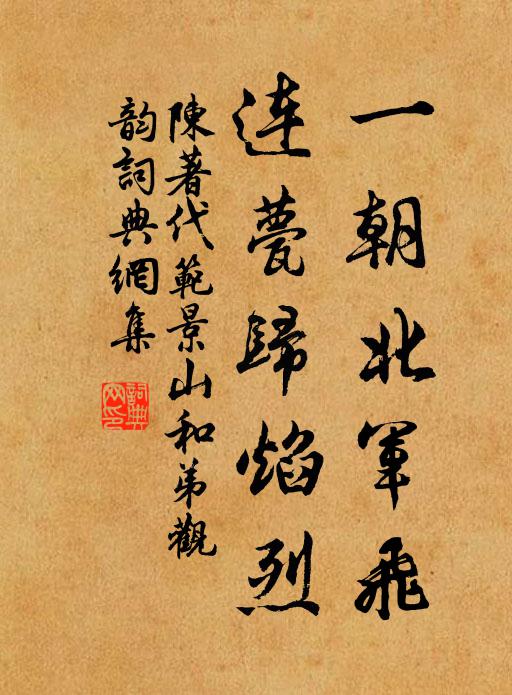 一朝北軍飛
連甍歸焰烈
陳著代範景山和弟觀
韵詞典網集
詞典網印